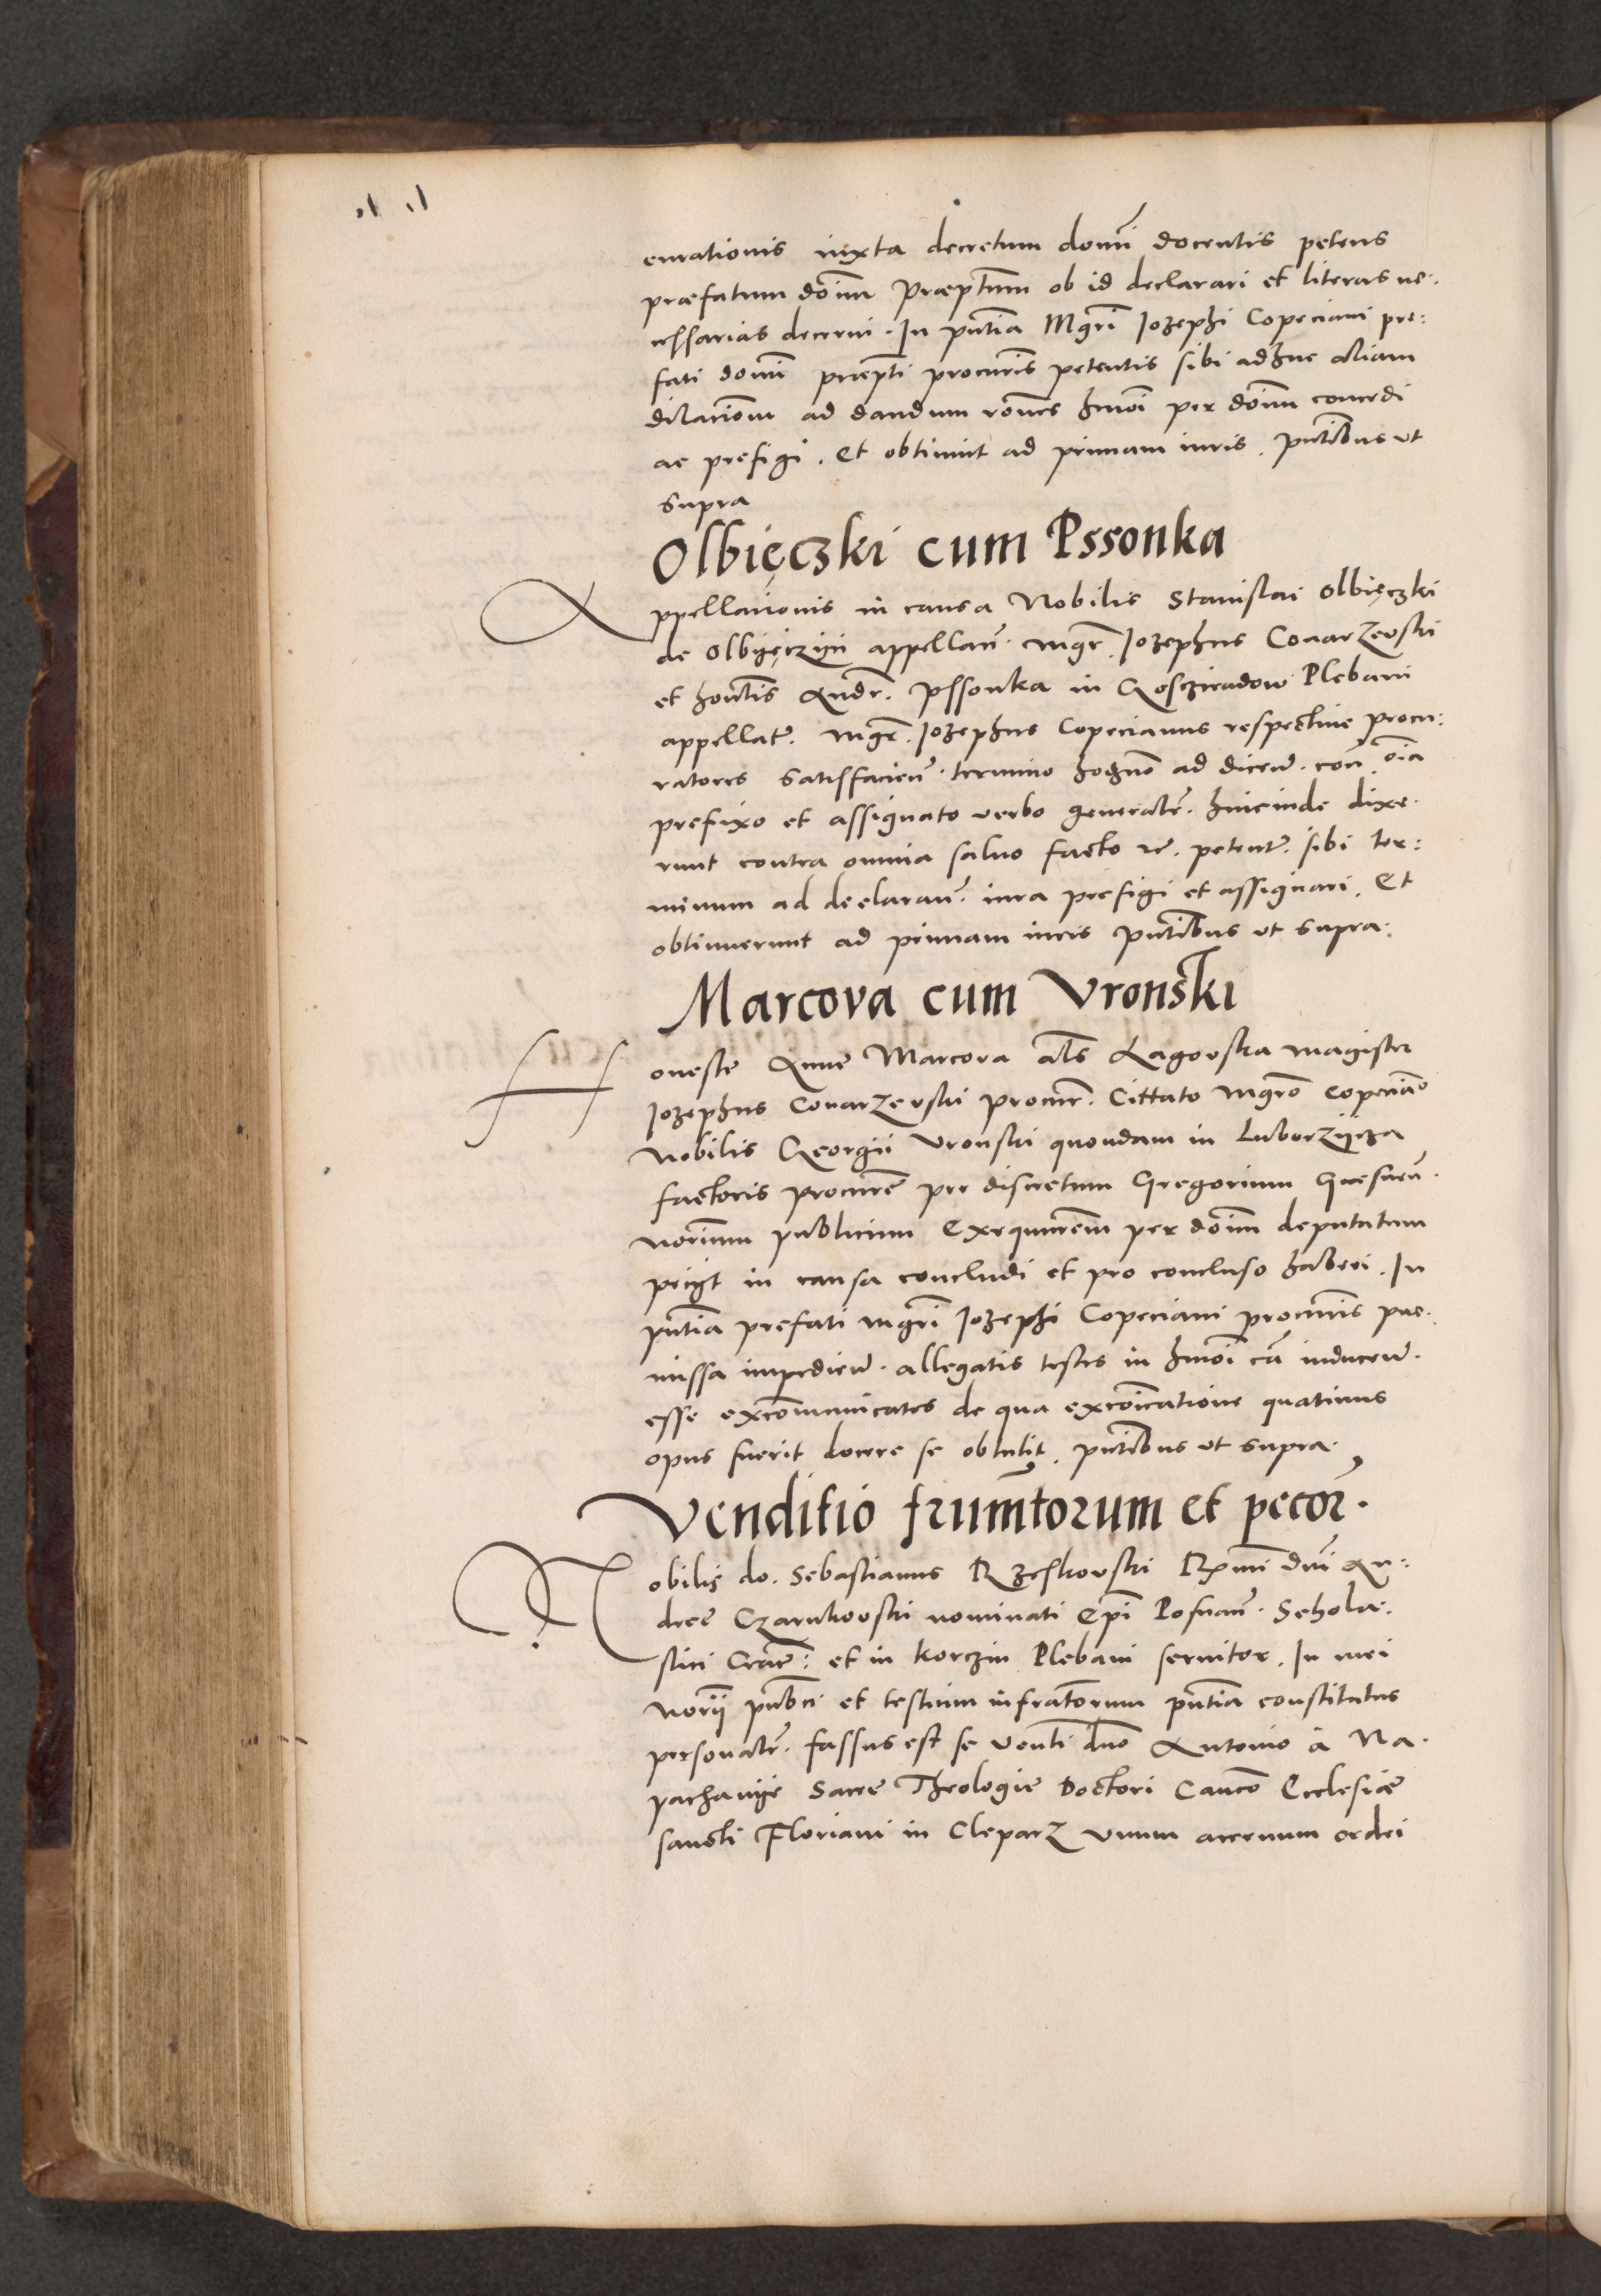 iuxta decretum domi docentis petens
præfatum doim Præptum ob id declarari et literas ne-
cessarias decerni. In pntia Mgri Iozephi Copeciani pre:
fati domi præpti procuris petentis sibi adhuc aliam
dilacionem ad dandum rones hmoi per doim concedi
ac prefigi. Et obtinuit ad primam iuris. Pntibus ut
supra
Olbięczki cum Pssonka
Appellationis in causa Nobilis Stanislai Olbięczki
de Olbyęczyn appellan. mgr Iozephus Covarzevski
et hontis Andr. Pssonka in Gosczieradow Plebani
appellat. mgr. Iozephus Copecianus respective procu:
ratores satisfacien. termino hodno ad dicen. con. oia
prefixo et assignato verbo generalr. hincinde dixe-
runt contra omnia salvo facto re. petent. sibi ter:
minum ad declaran. iura prefigi et assignari. Et
obtinuerunt ad primam iuris Pntibus ut supra.
Marcova cum Vronski
Honeste Anne Marcova als Lagovska magister
Iozephus Covarzevski procur. Cittato mgro Copeciano
Nobilis Georgii Vronski quondam in Luborzycza
factoris procure per discretum Gregorium
norium publicum Exequutrem per doim deputatum
pecijt in causa concludi et pro concluso haberi. In
pntia prefati mgri Iozephi Copeciani procuris pre-
missa impedien. allegatis testes in hmoi ca inducen.
esse excommunicatos de qua excoicatione quatinus
opus fuerit docere se obtulit. pntibus ut supra.
Venditio frumtorum et pecor.
Nobilis do. Sebastianus Rzeskovski Rmi dni An:
dree Czarnkovski nominati Epi Posnan. Schola-
stici Crac: et in Korczin Plebani servitor. In mei
norij publici et testium infratorum pntia constitutus
personalr. fassus est se venti dno Antonio à Na-
pachanije Sacre Theologie Doctori Canco Ecclesiæ
sancti Floriani in Cleparz unum acervum ordei